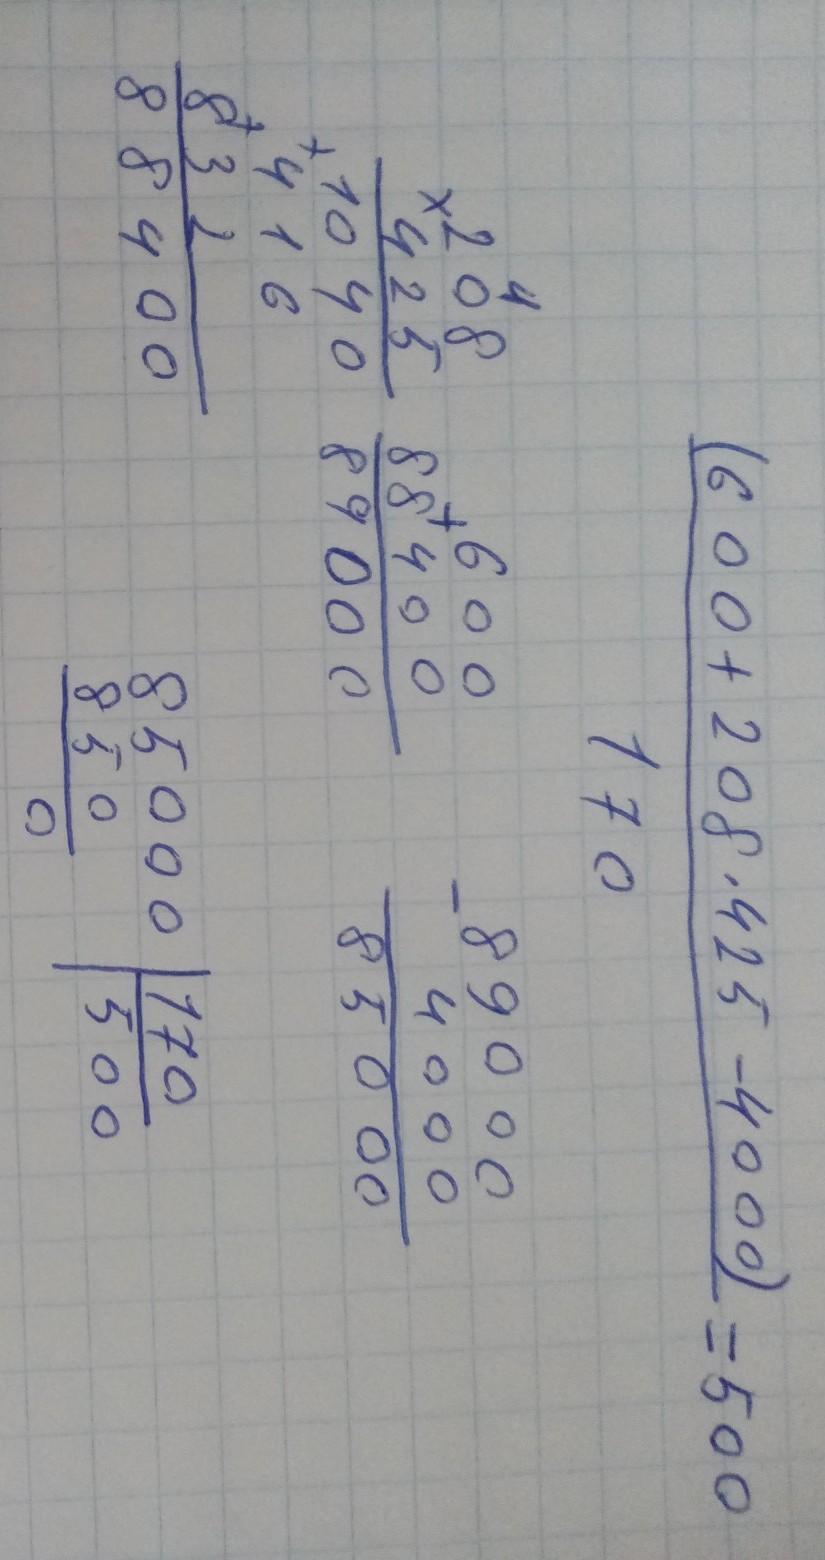 (600+208·425-4000)=500
170
4
×208
425
+1040
+416
832
88400
+600
88400
89000
-89000
4000
85000
85000 170
850 500
0